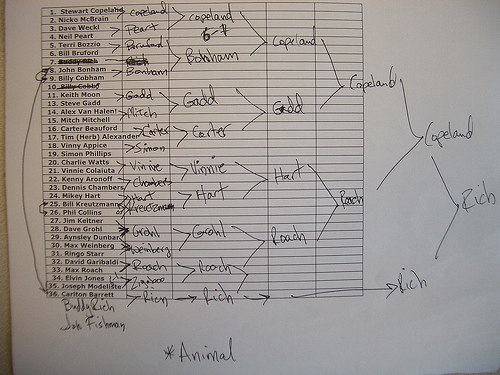 1. Stewart Copeland
2. Nicko McBrain
3. Dave Weckl
4. Neil Peart
5. Terri Bozzio
6. Bill Bruford
7. Buddy Rich
8. John Bonham
9. Billy Cobham
10. Billy Cobby
11. Keith Moon
13. Steve Gadd
14. Alex Van Halen
15. Mitch Mitchell
16. Carter Beauford
17. Tim (Herb) Alexander
18. Vinny Appice
19. Simon Phillips
20. Charlie Watts
21. Vinnie Colaiuta
22. Kenny Aronoff
23. Dennis Chambers
24. Mikey Hart
25. Bill Kreutzmann
26. Phil Collins
27. Jim Keltner
28. Dave Grohl
29. Aynsley Dunbar
30. Max Weinberg
31. Ringo Starr
32. David Garibaldi
33. Max Roach
34. Elvin Jones
35. Joseph Modeliste
36. Carlton Barrett
Buddy Rich
Jon Fishman
Copeland
Peart
Bruford
Bonham
Gadd
Mitch
Carter
Simon
Vinnie
Chambers
Hart
Kreutzmann
Grohl
Weinberg
Roach
Zigaboo
Rich
Copeland
6-7
Bonham
Gadd
Carter
Vinnie
Hart
Grohl
Roach
Rich
Copeland
Gadd
Hart
Roach
Copeland
Roach
Copeland
Rich
Rich
*Animal